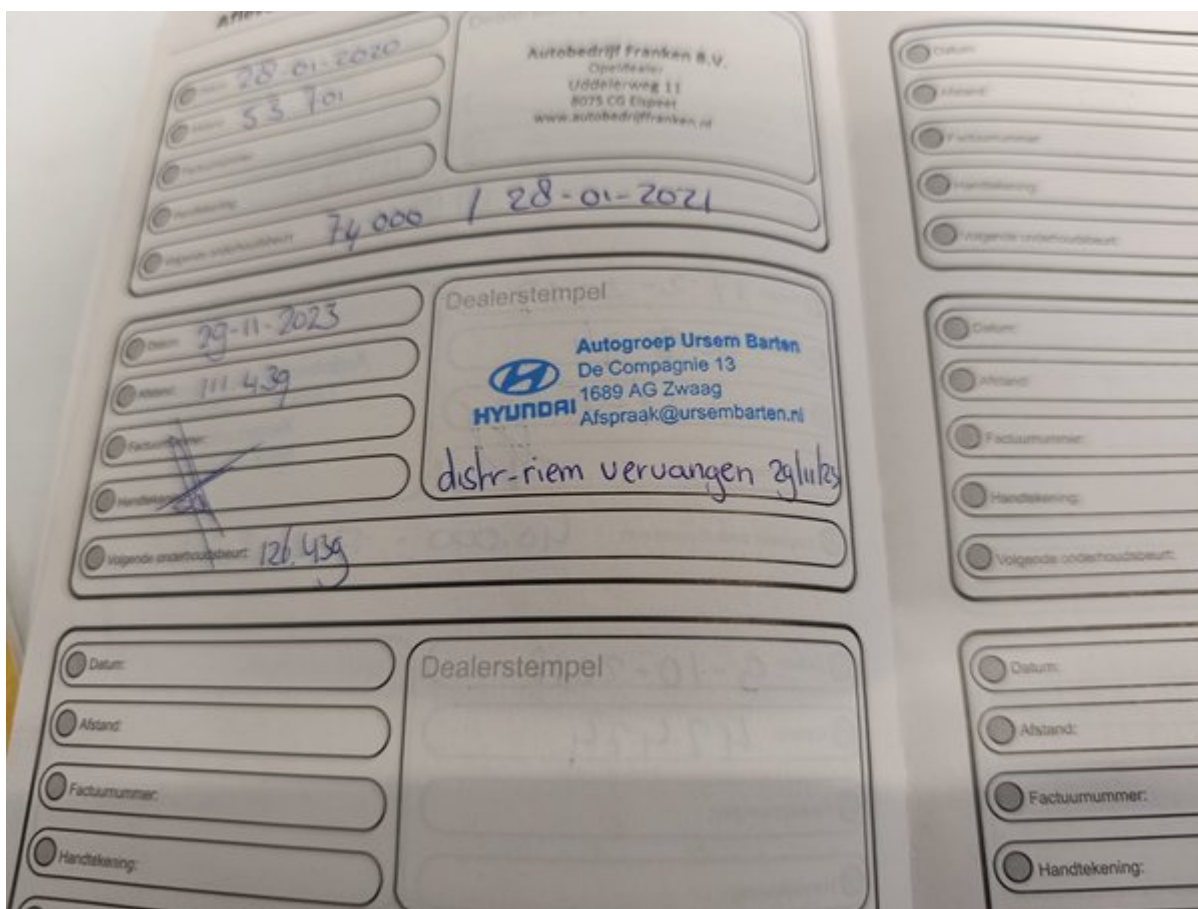 Datum: 28-01-2020
53 701
Factuurnummer:
Handtekening:
Volgende onderhoudsbeurt: 74,000 / 28-01-2021
Autobedrijf Franken B.V.
Opeldealer
Uddelerweg 11
8075 CG Elspeet
www.autobedrijffranken.nl
Datum: 29-11-2023
Afstand: 111.439
Factuurnummer:
Handtekening:
Volgende onderhoudsbeurt: 126.439
Dealerstempel
HYUNDAI
Autogroep Ursem Barten
De Compagnie 13
1689 AG Zwaag
Afspraak@ursembarten.nl
distr-riem vervangen 29/11/23
Datum:
Afstand:
Factuurnummer:
Handtekening:
Dealerstempel
Datum:
Afstand:
Factuurnummer:
Handtekening:
Volgende onderhoudsbeurt:
Datum:
Afstand:
Factuurnummer:
Handtekening:
Volgende onderhoudsbeurt:
Datum:
Afstand:
Factuurnummer:
Handtekening: